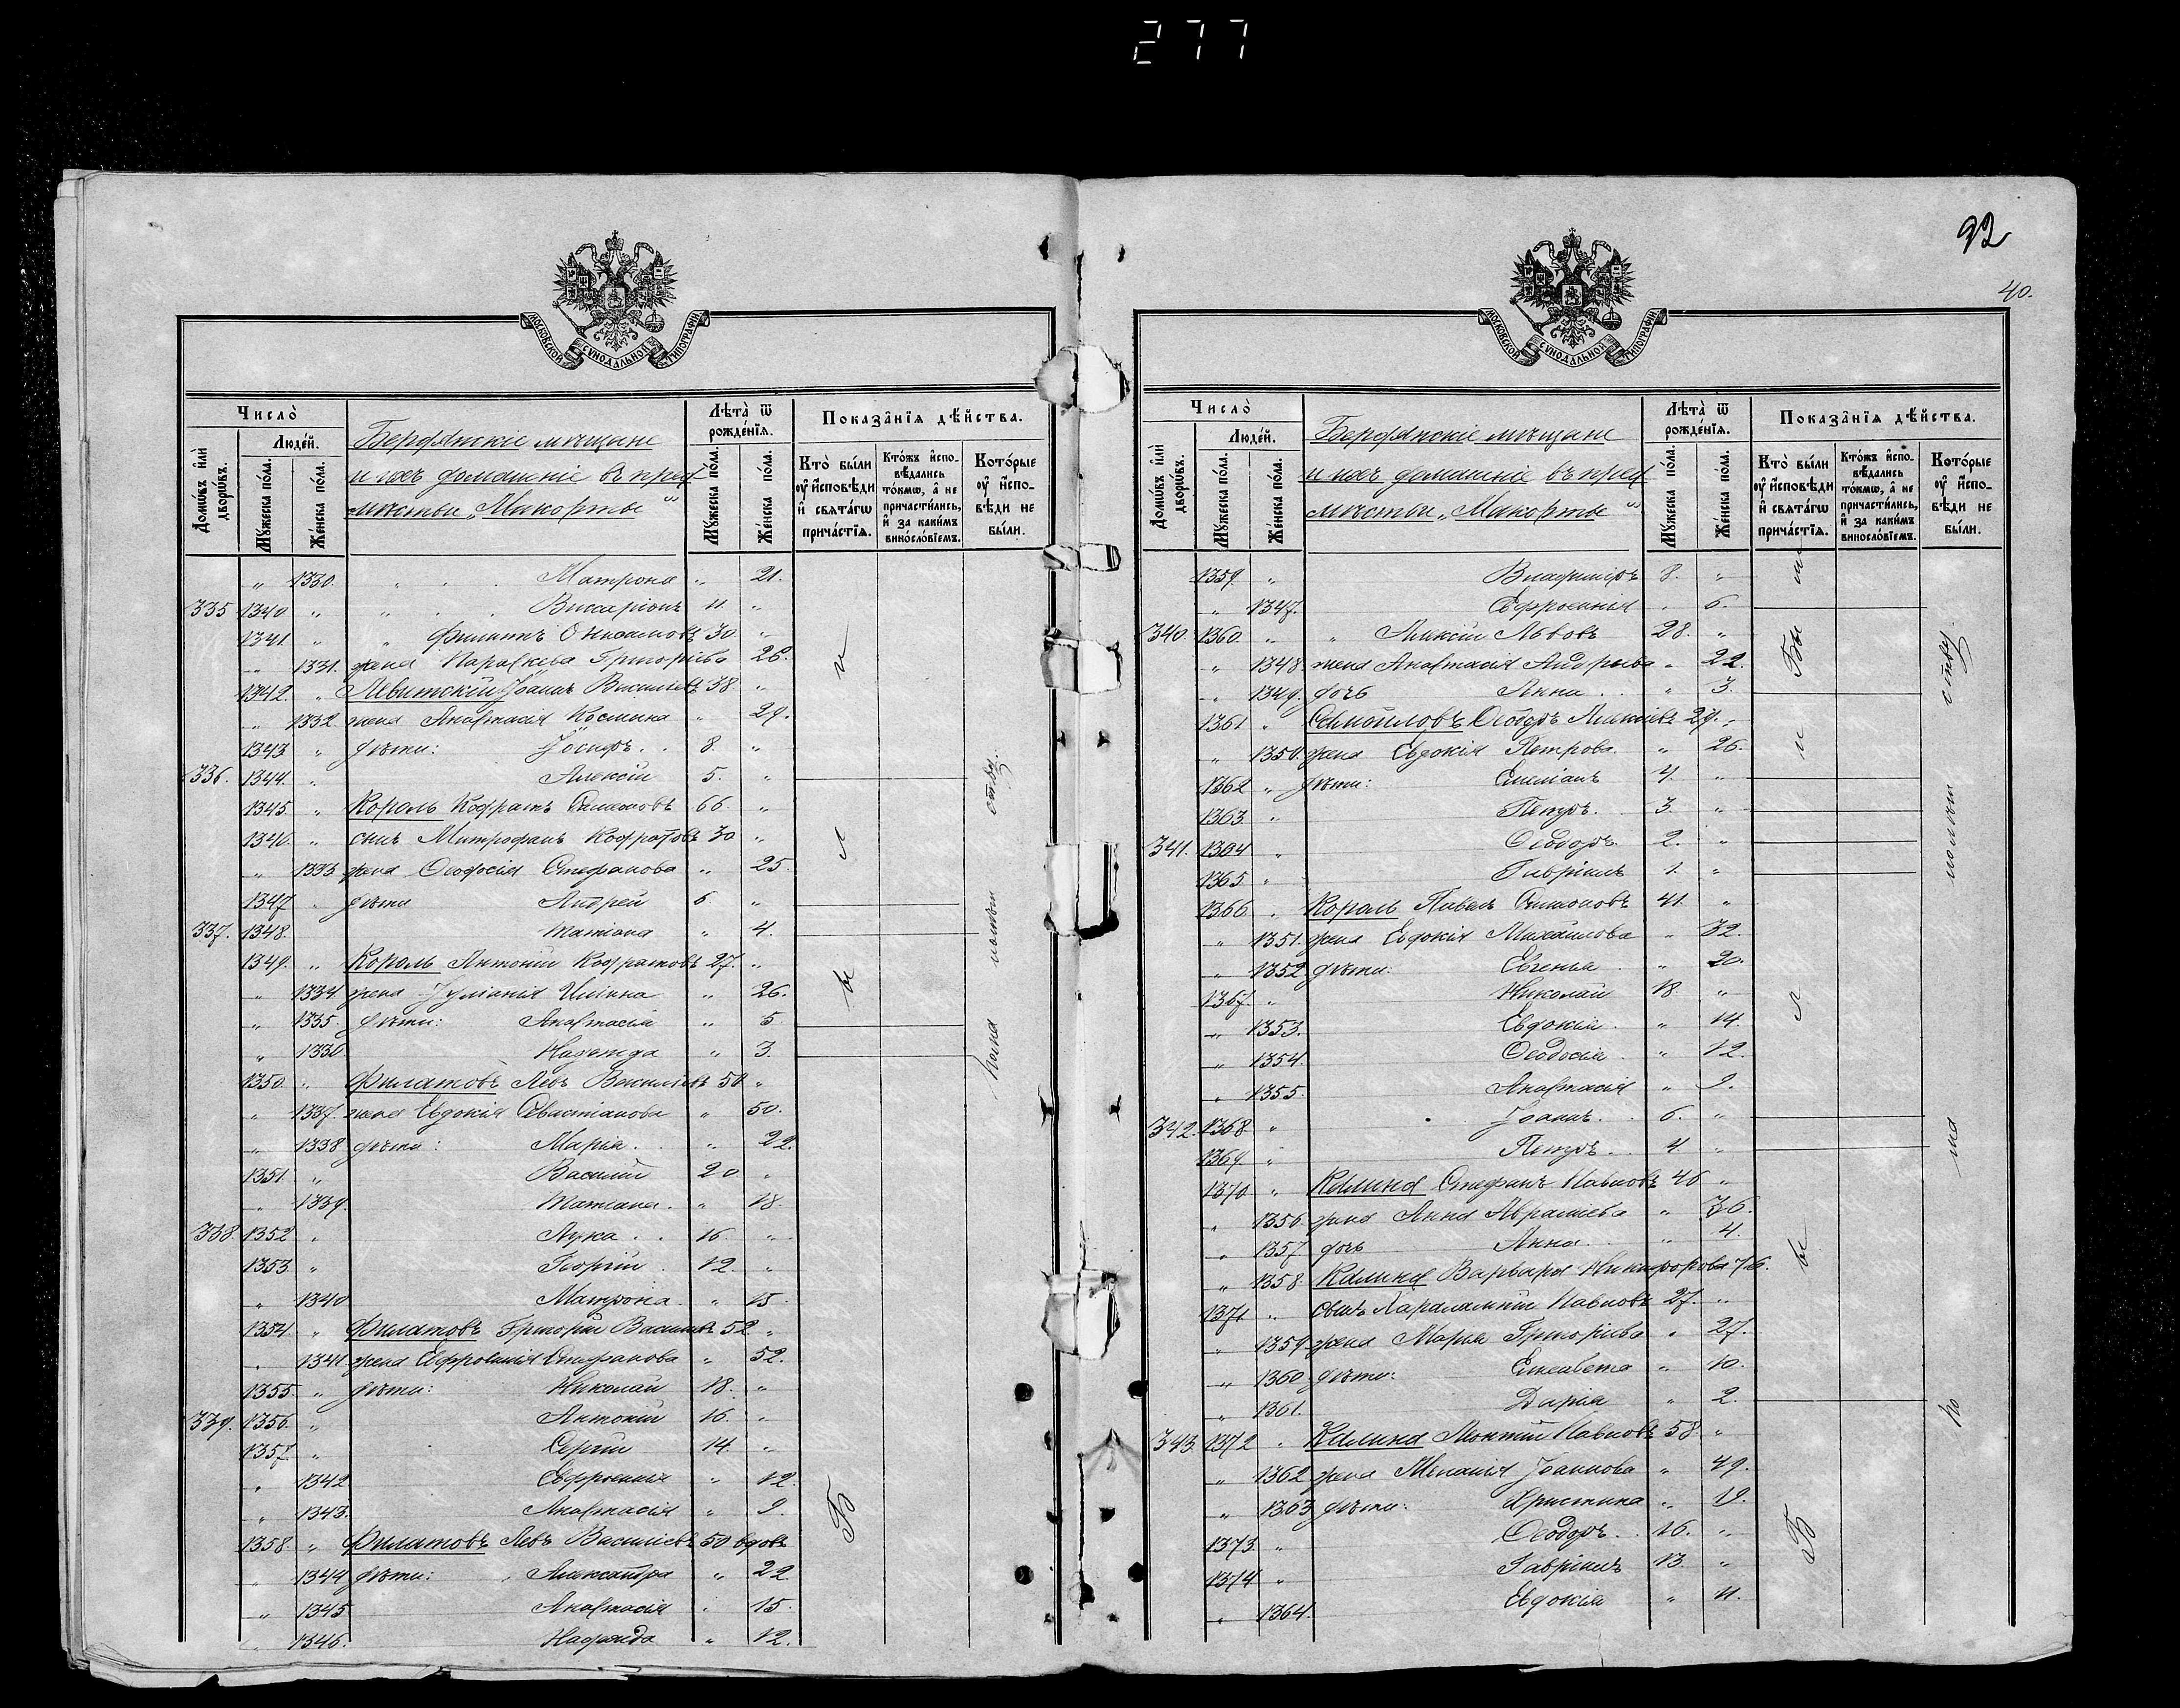 277
92
40.
МОСКОВСКОЙ СУНОДАЛЬНОЙ ТИПОГРАФІИ
Число̀
Домѡ́въ и҆лѝ дворѡ́въ.
Люде́й.
Мꙋ́жеска по́ла.
Же́нска по́ла.
Бердянскіе мѣщане
и ихъ домашніе въ пред-
мѣстьи „Макорты“
Лѣ́та ѿ рожде́нїѧ.
Мꙋ́жеска по́ла.
Же́нска по́ла.
Показа̑нїѧ дѣ́йства.
Кто̀ бы́ли ᲂу҆ и҆́сповѣди и҆ свѧта́гѡ прича́стїѧ.
Кто́жъ и҆спо­вѣ́дались то́кмѡ, а҆ не причасти́лись, и҆ за каки́мъ виносло́вїемъ.
Кото́рые ᲂу҆ и҆́сповѣди не бы́ли.
„ 1330. Матрона „ 21.
335 1340 „ Виссаріонъ 11. „
1341. „ „ Филиппъ Онисимовъ 30 „
„ 1331. жена Параскева Григоріева 26.
1342. „ Левитскій Іоаннъ Василіевъ 38. „
„ 1332 жена Анастасія Космина „ 29.
1343 „ дѣти: Іосифъ . . 8. „
336. 1344. „ Алексій 5. „
1345. „ Король Кодратъ Симоновъ 66. „
1346. „ сынъ Митрофанъ Кодратовъ 30 „
„ 1333 жена Ѳеодосія Стефанова „ 25.
1347 „ дѣти Андрей 6 „
337. 1348. Татіана „ 4.
1349. „ Король Антоній Кодратовъ 27. „
„ 1334. жена Іуліанія Иліина „ 26.
„ 1335. дѣти: Анастасія „ 5.
„ 1336 Надежда „ 3.
1350. „ Филатовъ Левъ Василіевъ 50 „
„ 1337. жена Евдокія Севастіанова „ 50.
„ 1338 дѣти: Марія. „ 22.
1351. „ Василій 20 „
„ 1339. Татіана. „ 18.
338. 1352. „ Лука . . 16. „
1353 „ Георгій . 12. „
„ 1340 Матрона. „ 15.
1354 „ Филатовъ Григорій Василіевъ 52 „
„ 1341 жена Евфросинія Стефанова „ 52.
1355. „ дѣти: Николай 18. „
339. 1356. „ Антоній 16. „
1357. „ Сергій 14. „
„ 1342 Евфросинія „ 12.
„ 1343. Анастасія „ 9.
1358. „ Филатовъ Левъ Василіевъ 50 вдовъ
„ 1344 дѣти: Александра „ 22.
„ 1345 Анастасія „ 15.
„ 1346. Надежда „ 12.
Были
МОСКОВСКОЙ СУНОДАЛЬНОЙ ТИПОГРАФІИ
Число̀
Домѡ́въ и҆лѝ дворѡ́въ.
Люде́й.
Мꙋ́жеска по́ла.
Же́нска по́ла.
Бердянскіе мѣщане
и ихъ домашніе въ пред-
мѣстьи „Макорты“
Лѣ́та ѿ рожде́нїѧ.
Мꙋ́жеска по́ла.
Же́нска по́ла.
Показа̑нїѧ дѣ́йства.
Кто̀ бы́ли ᲂу҆ и҆́сповѣди и҆ свѧта́гѡ прича́стїѧ.
Кто́жъ и҆спо­вѣ́дались то́кмѡ, а҆ не причасти́лись, и҆ за каки́мъ виносло́вїемъ.
Кото́рые ᲂу҆ и҆́сповѣди не бы́ли.
1359. „ Владиміръ 8. „
„ 1347. Евфросинія . 6.
340. 1360. „ „ Алексій Львовъ 28. „
„ 1348 жена Анастасія Андреева „ 22.
„ 1349. дочь Анна . . „ 3.
1361 „ Самойловъ Ѳеодоръ Алексіевъ 29. „
„ 1350. жена Евдокія Петрова „ 26.
1362 „ дѣти: Емиліанъ 4. „
1363. „ Петръ. 3. „
341. 1364 „ Ѳеодоръ. 2. „
1365 „ Гавріилъ 1. „
1366. „ Король Павелъ Симоновъ 41. „
„ 1351. жена Евдокія Михайлова „ 32.
„ 1352. дѣти: Евгенія . „ 20.
1367. „ Николай 18. „
„ 1353. Евдокія. „ 14.
„ 1354. Ѳеодосія. „ 12.
„ 1355. Анастасія „ 9.
342. 1368. „ Іоаннъ. . 6. „
1369. „ Петръ. . 4. „
1370 „ Калина Стефанъ Павловъ 46 „
„ 1356. жена Анна Авраміева „ 36.
„ 1357 дочь Анна. „ 4.
„ 1358. Калина Варвара Никифорова 76.
1371. „ сынъ Харалампій Павловъ 27. „
„ 1359. жена Марія Григоріева „ 27.
„ 1360 дѣти: Елисавета „ 10.
„ 1361. Дарія „ 2.
343. 1372 „ Калина Леонтій Павловъ 58. „
„ 1362. жена Меланія Іоаннова „ 49.
„ 1363 дѣти: Христина „ 19.
1373. „ Ѳеодоръ. . 16. „
1374 „ Гавріилъ 13. „
„ 1364. Евдокія „ 11.
Были